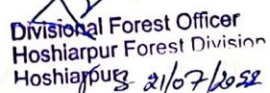 Divisional Forest Officer
Hoshiarpur Forest Division
Hoshiarpur 21/07/2022